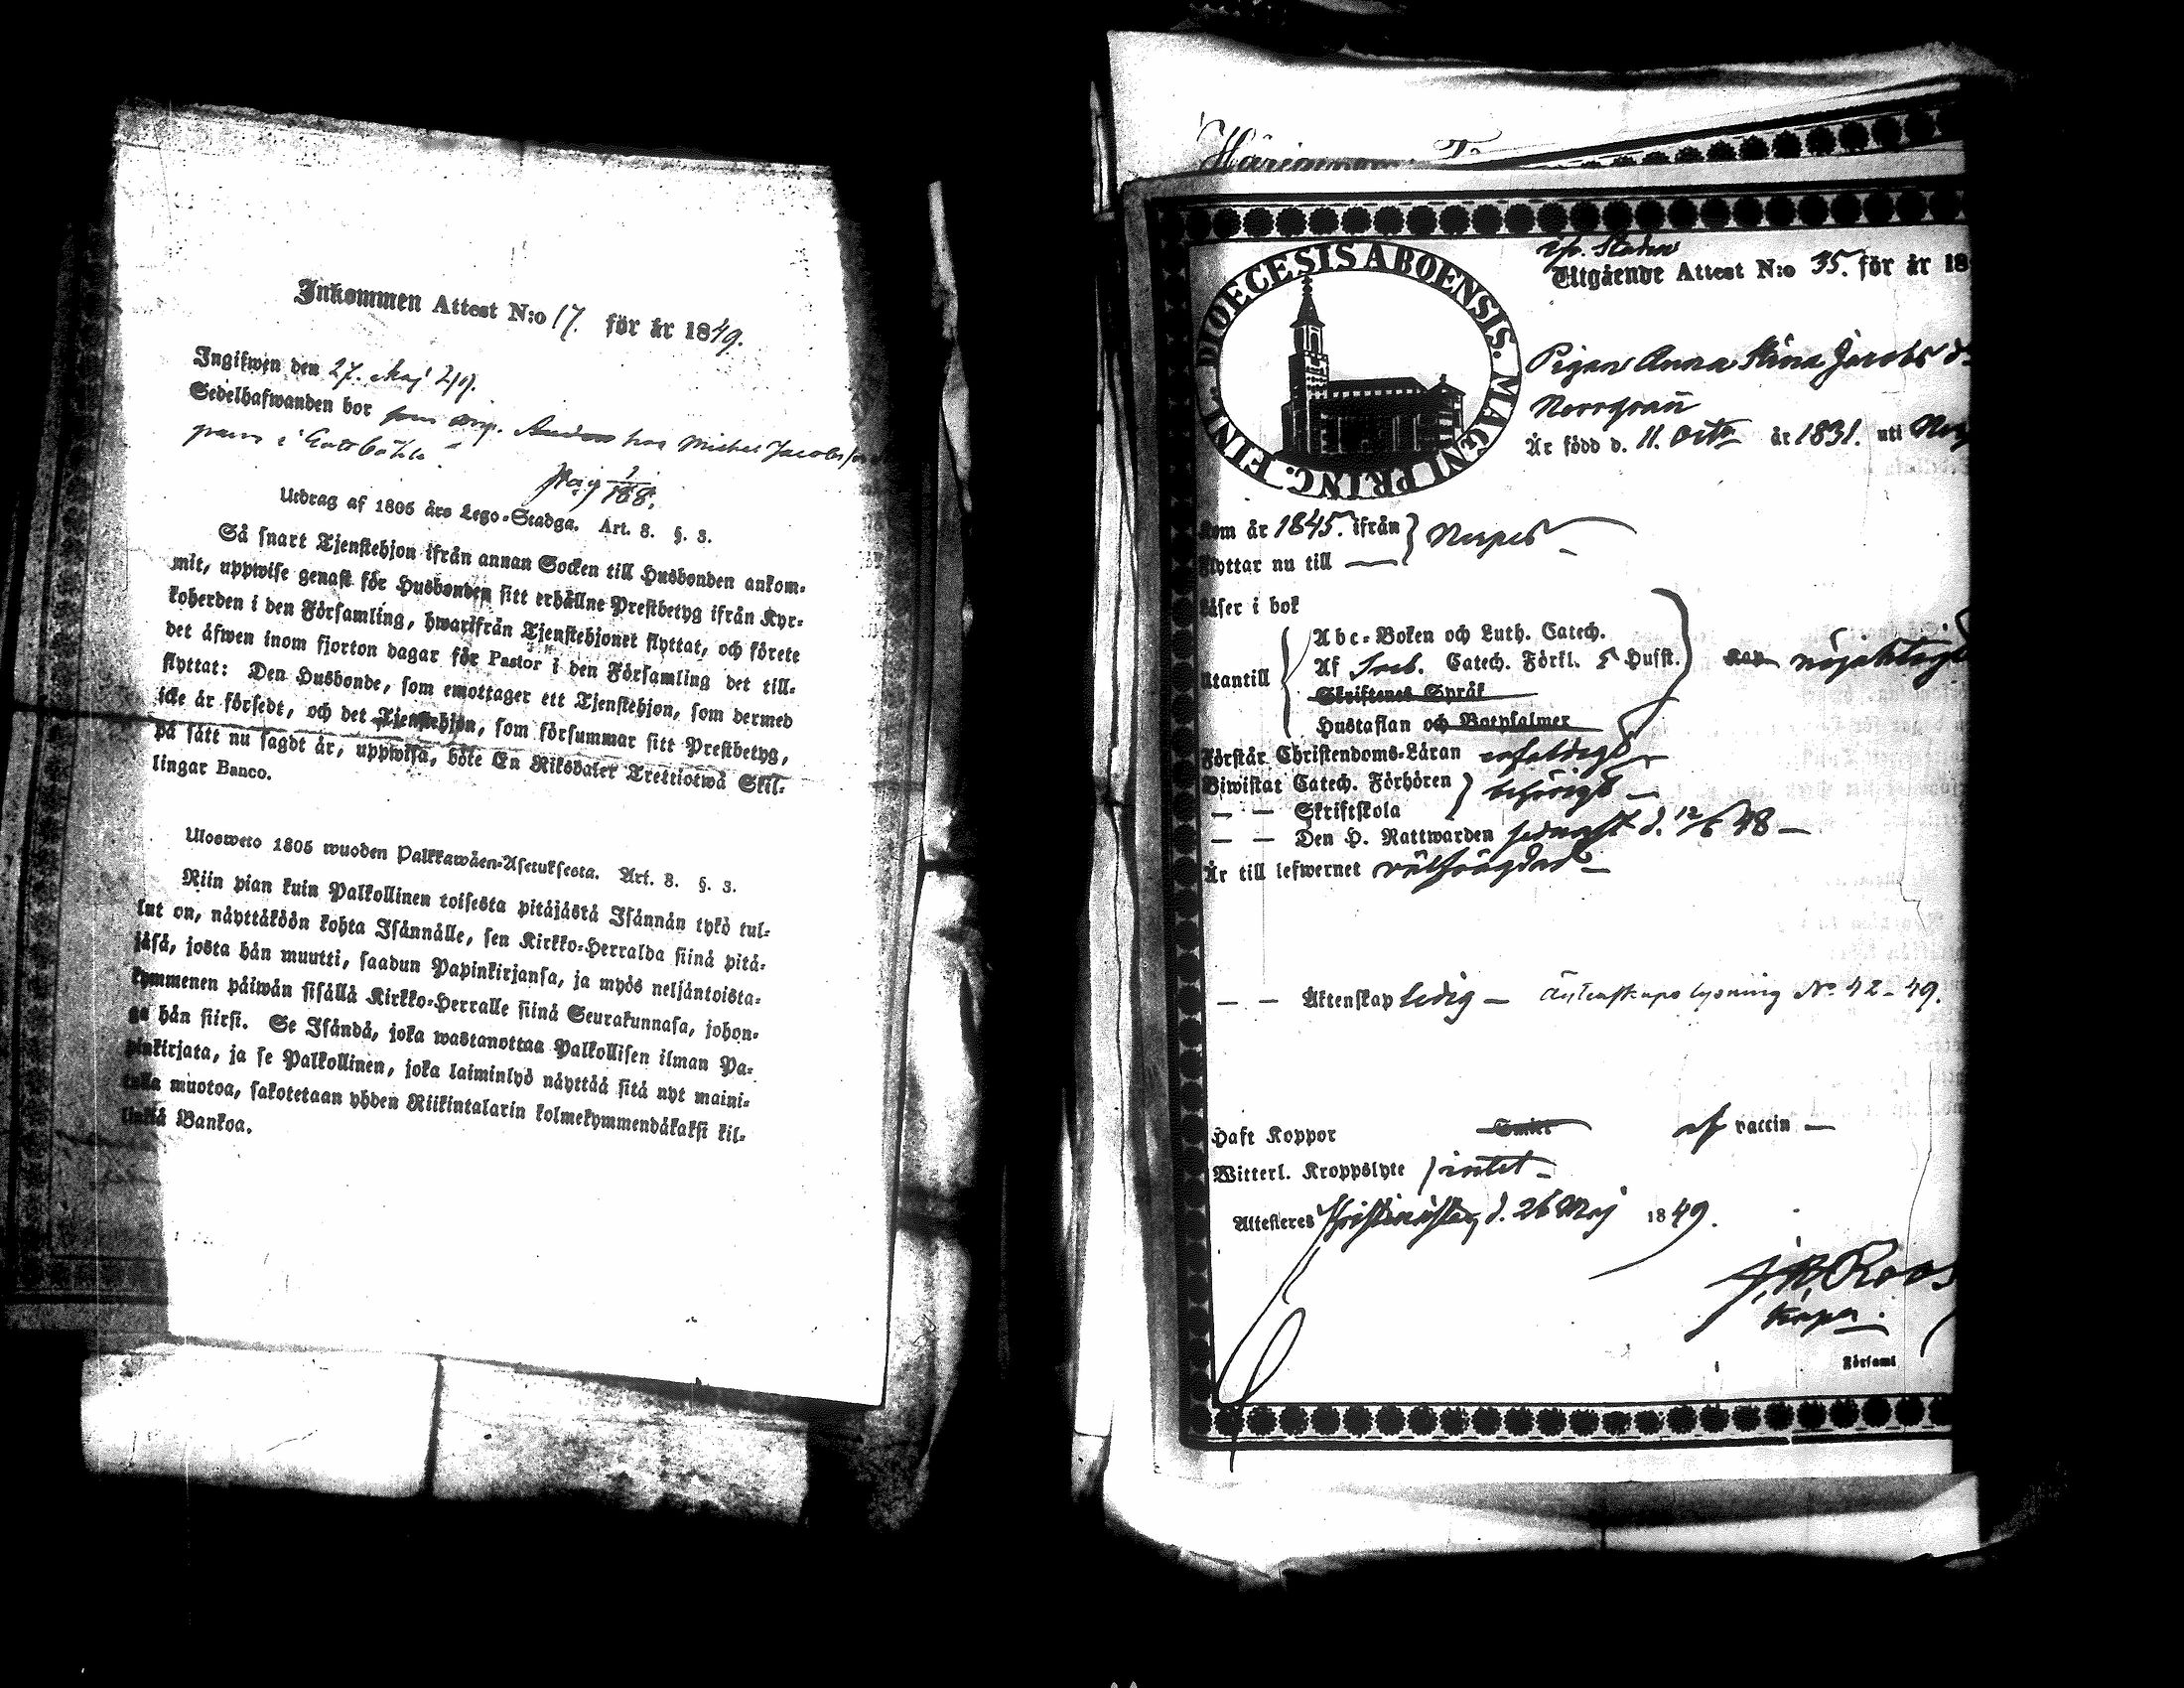 Inkommen Attest N:o 17. för år 1849.
Ingifwen den 27. Maj 49.
Sedelhafwanden bor hos Michel Jacobs
i
Pag 188.
Utdrag af 1805 års Lego-Stadga. Art. 8. §. 3.
Så snart Tjenstehjon ifrån annan Socken till Husbonden ankom-
mit, uppwise genast för Husbonden sitt erhållne Prestbetyg ifrån Kyr-
koherden i den Församling, hwarifrån Tjenstehjonet flyttat, och förete
det äfwen inom fjorton dagar för Pastor i den Församling det till-
flyttat: Den Husbonde, som emottager ett Tjenstehjon, som dermed
icke är försedt, och det Tjenstehjon, som försummar sitt Prestbetyg,
på sätt nu sagdt är, uppwisa, böte En Riksdaler Trettiotwå Skil-
lingar Banco.
Ulosweto 1805 wuoden Palkkawäen-Asetuksesta. Art. 8. §. 3.
Niin pian kuin Palkollinen toisesta pitäjästä Isännän tykö tul-
lut on, näyttäköön kohta Isännälle, sen Kirkko-Herralda siinä pitä-
jäsä, josta hän muutti, saadun Papinkirjansa, ja myös neljäntoista-
kymmenen päiwän sisällä Kirkko-Herralle siinä Seurakunnasa, johon-
ga hän siirsi. Se Isändä, joka wastanottaa Palkollisen ilman Pa-
pinkirjata, ja se Palkollinen, joka laiminlyö näyttää sitä nyt maini-
tulla muotoa, sakotetaan yhden Riikintalarin kolmekymmendäkaksi kil-
linkiä Bankoa.
DIOECESIS ABOENSIS. MAGNI PRINC. FINL.
Utgående Attest N:o 35. för år 18
Pigan Anna Stina Jacobs d:
Norrgrann
Är född d. 11. Octo år 1831. uti
Kom år 1845. ifrån } Nerpes
Flyttar nu till
Läser i bok
Abc-Boken och Luth. Catech.
Utantill Af Sveb. Catech. Förkl. 5 Hufst. nöjaktigt
Skriftenes Språk
Hustaflan och Botpsalmer
Förstår Christendoms-Läran enfaldigt
Biwistat Catech. Förhören } behörigt
— — Skriftskola
— — Den H. Nattwarden sednast d. 12/6 48 —
Är till lefwernet välfrägdad —
— — Äktenskap ledig — äktenskaps lysning No 42 - 49.
Haft Koppor Smitt af vaccin —
Witterl. Kroppslyte } intet —
Attesteres Christinæstad d. 26 Maj 1849.
J. W. Roos
Församl